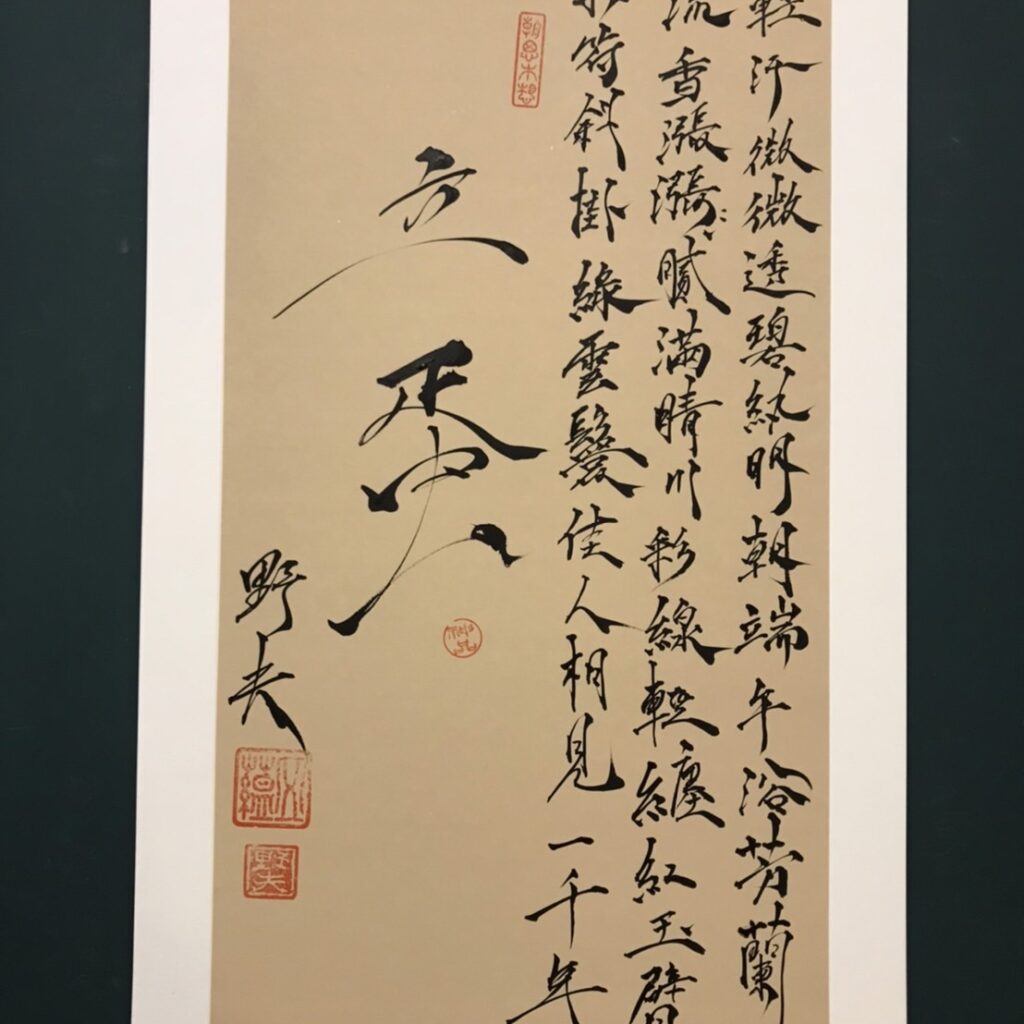 輕汗微微透碧紈明朝端午浴芳蘭
流香漲漲膩滿晴川彩線輕纏紅玉臂
符斜掛綠雲鬟佳人相見一千年
朝思木想
野夫
野夫